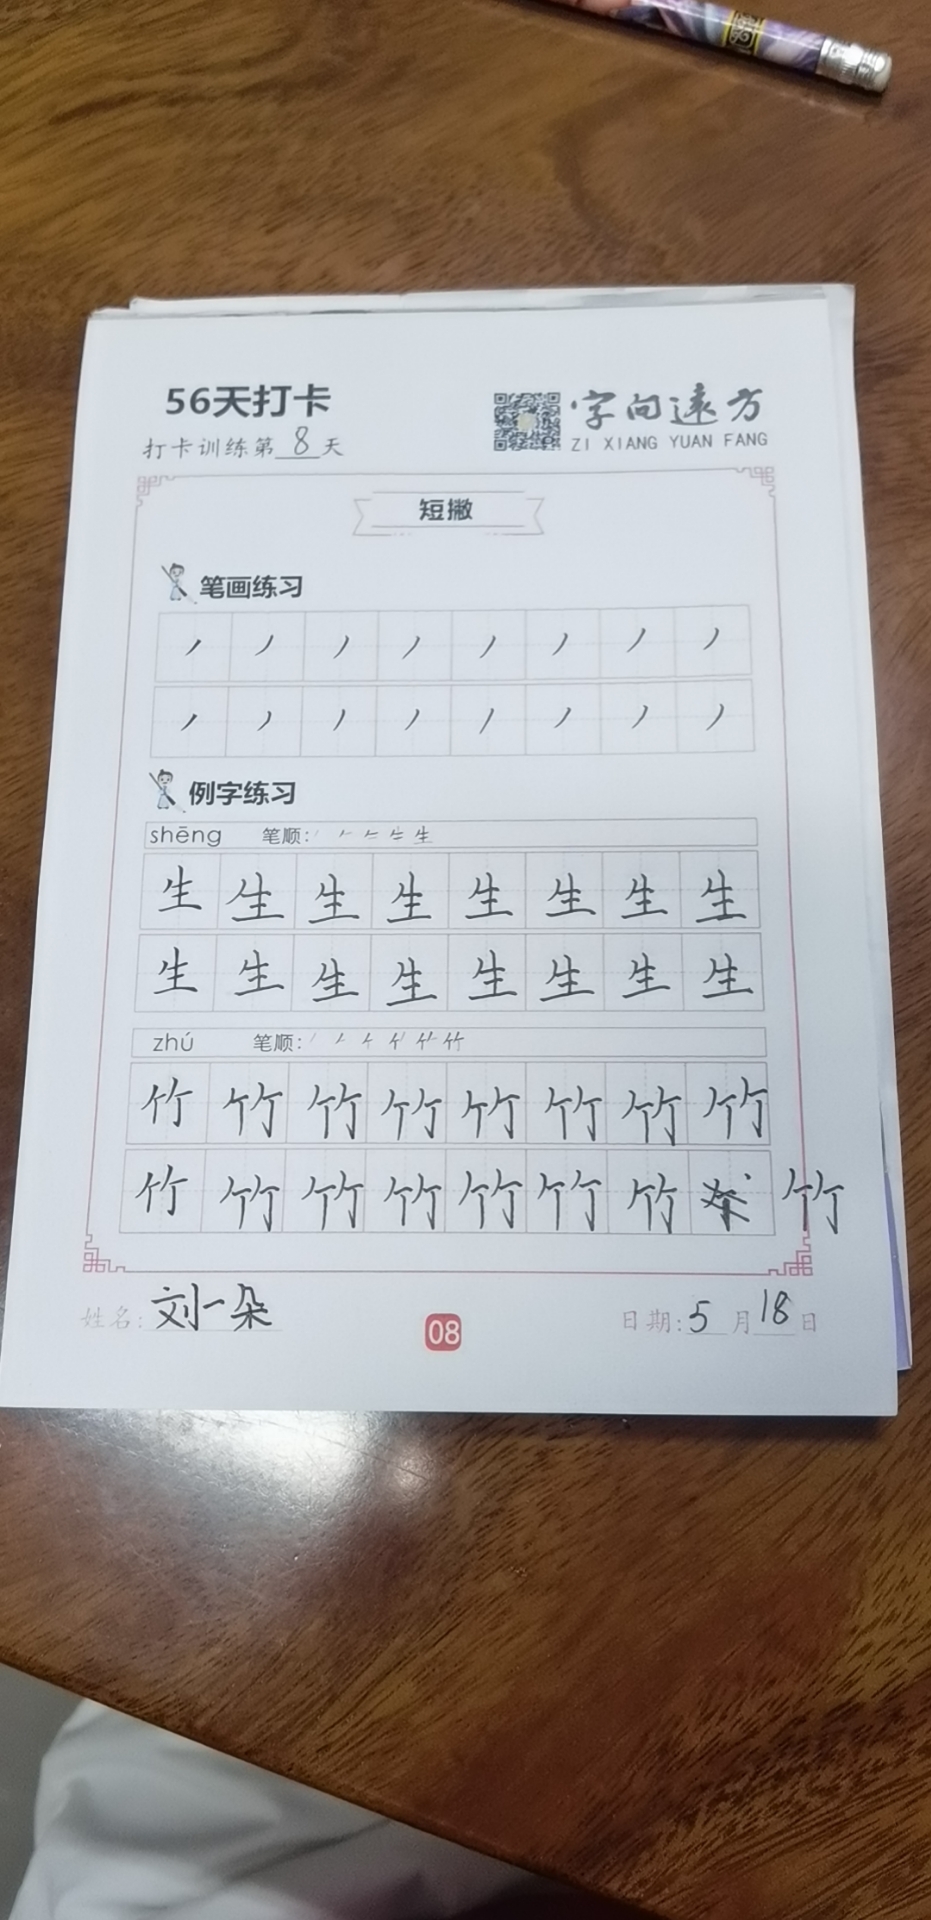 56天打卡
字向远方
打卡训练第8天
ZI XIANG YUAN FANG
短撇
笔画练习
丿 丿 丿 丿 丿 丿 丿 丿
丿 丿 丿 丿 丿 丿 丿 丿
例字练习
shēng 笔顺: 生
生 生 生 生 生 生 生 生
生 生 生 生 生 生 生 生
zhú 笔顺: 竹
竹 竹 竹 竹 竹 竹 竹 竹
竹 竹 竹 竹 竹 竹 竹 竹
姓名: 刘一朵
08
日期: 5月18日